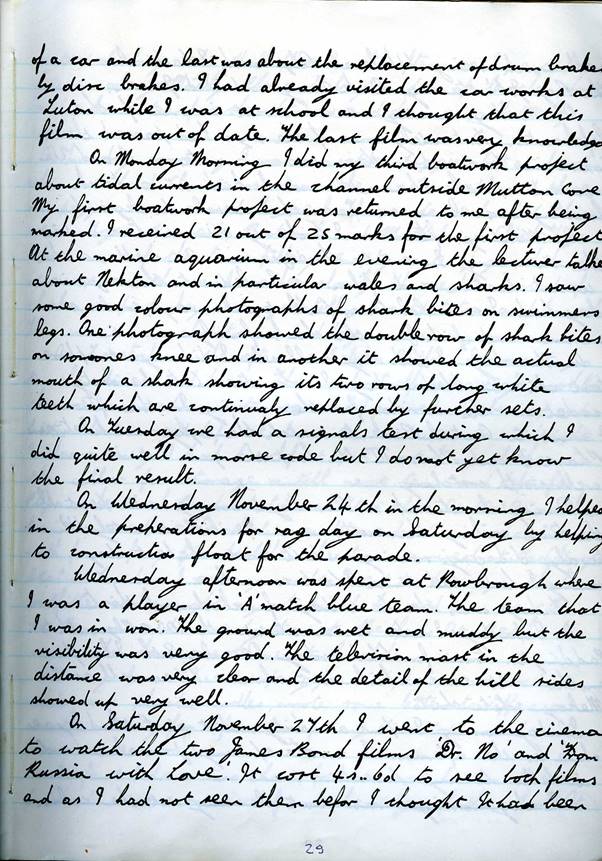 of a car and the last was about the replacement of drum brakes
by disc brakes. I had already visited the car works at
Luton while I was at school and I thought that this
film was out of date. The last film was very knowledg
On Monday Morning I did my third boatwork project
about tidal currents in the channel outside Mutton Cove
My first boatwork project was returned to me after being
marked. I received 21 out of 25 marks for the first project
At the marine aquarium in the evening the lecturer talke
about Nekton and in particular wales and sharks. I saw
some good colour photographs of shark bites on swimmers
legs. One photograph showed the double row of shark bites
on somones knee and in another it showed the actual
mouth of a shark showing its two rows of long white
teeth which are continualy replaced by further sets.
On Tuesday we had a signals test during which I
did quite well in morse code but I do not yet know
the final result.
On Wednesday November 24th in the morning I helped
in the preperations for rag day on Saturday by helping
to construct a float for the parade.
Wednesday afternoon was spent at Rowbrough where
I was a player in 'A' match blue team. The team that
I was in won. The ground was wet and muddy but the
visibility was very good. The television mast in the
distance was very clear and the detail of the hill sides
showed up very well.
On Saturday November 27th I went to the cinema
to watch the two James Bond films 'Dr. No' and 'From
Russia with Love'. It cost 4s..6d to see both films
and as I had not seen them befor I thought It had been
29